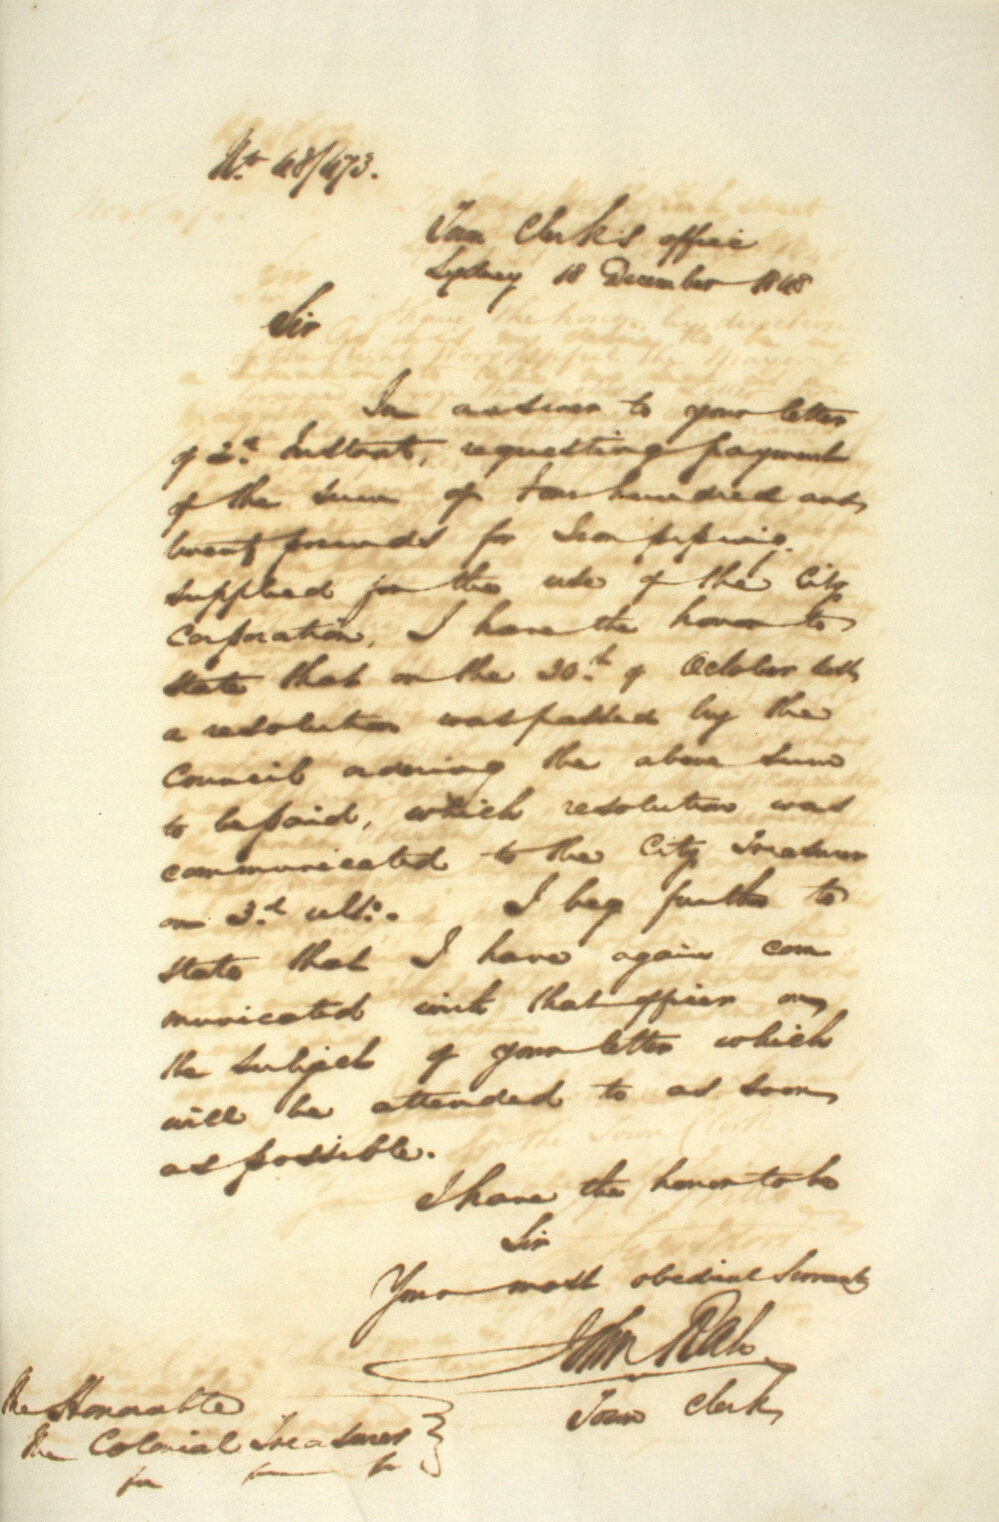 No. 48/473.
Town Clerk's office
Sydney 18 December 1848
Sir
In answer to your letter
of 2d. Instant, requesting payment
of the sum of Four hundred and
twenty pounds for Iron piping
supplied for the use of the City
Corporation, I have the honor to
state that on the 30th. of October last
a resolution was passed by the
Council ordering the above sum
to be paid, which resolution was
communicated to the City Treasurer
on 3.d ulto.. I beg further to
state that I have again com
municated with that officer on
the subject of your letter which
will be attended to as soon
as possible.
I have the honor to be
Sir
Your most obedient Servant
John Rae
Town Clerk
The Honorable
The Colonial Treasurer